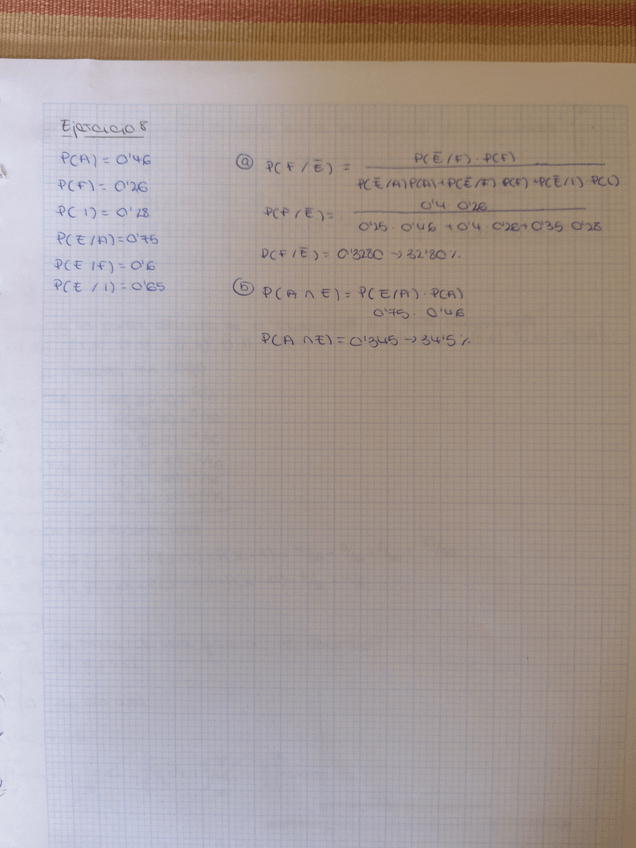 Ejercicio 8
P(A) = 0'46
P(F) = 0'26
P( I ) = 0'28
P(E/A)=0'75
P(E/F) = 0'6
P(E / I) = 0'65
ⓐ P(F / Ē) = P(Ē/F) · P(F)
P(Ē/A) P(A)+P(Ē/F) P(F) +P(Ē/I) · P(I)
P(F/Ē)= 0'4 0'26
0'25 · 0'46 + 0'4 0'26+0'35 0'28
P(F/Ē) = 0'3280 → 32'80%
ⓑ P(A ∩ E) = P(E/A) · P(A)
0'75 · 0'46
P(A ∩E) = 0'345 → 34'5%